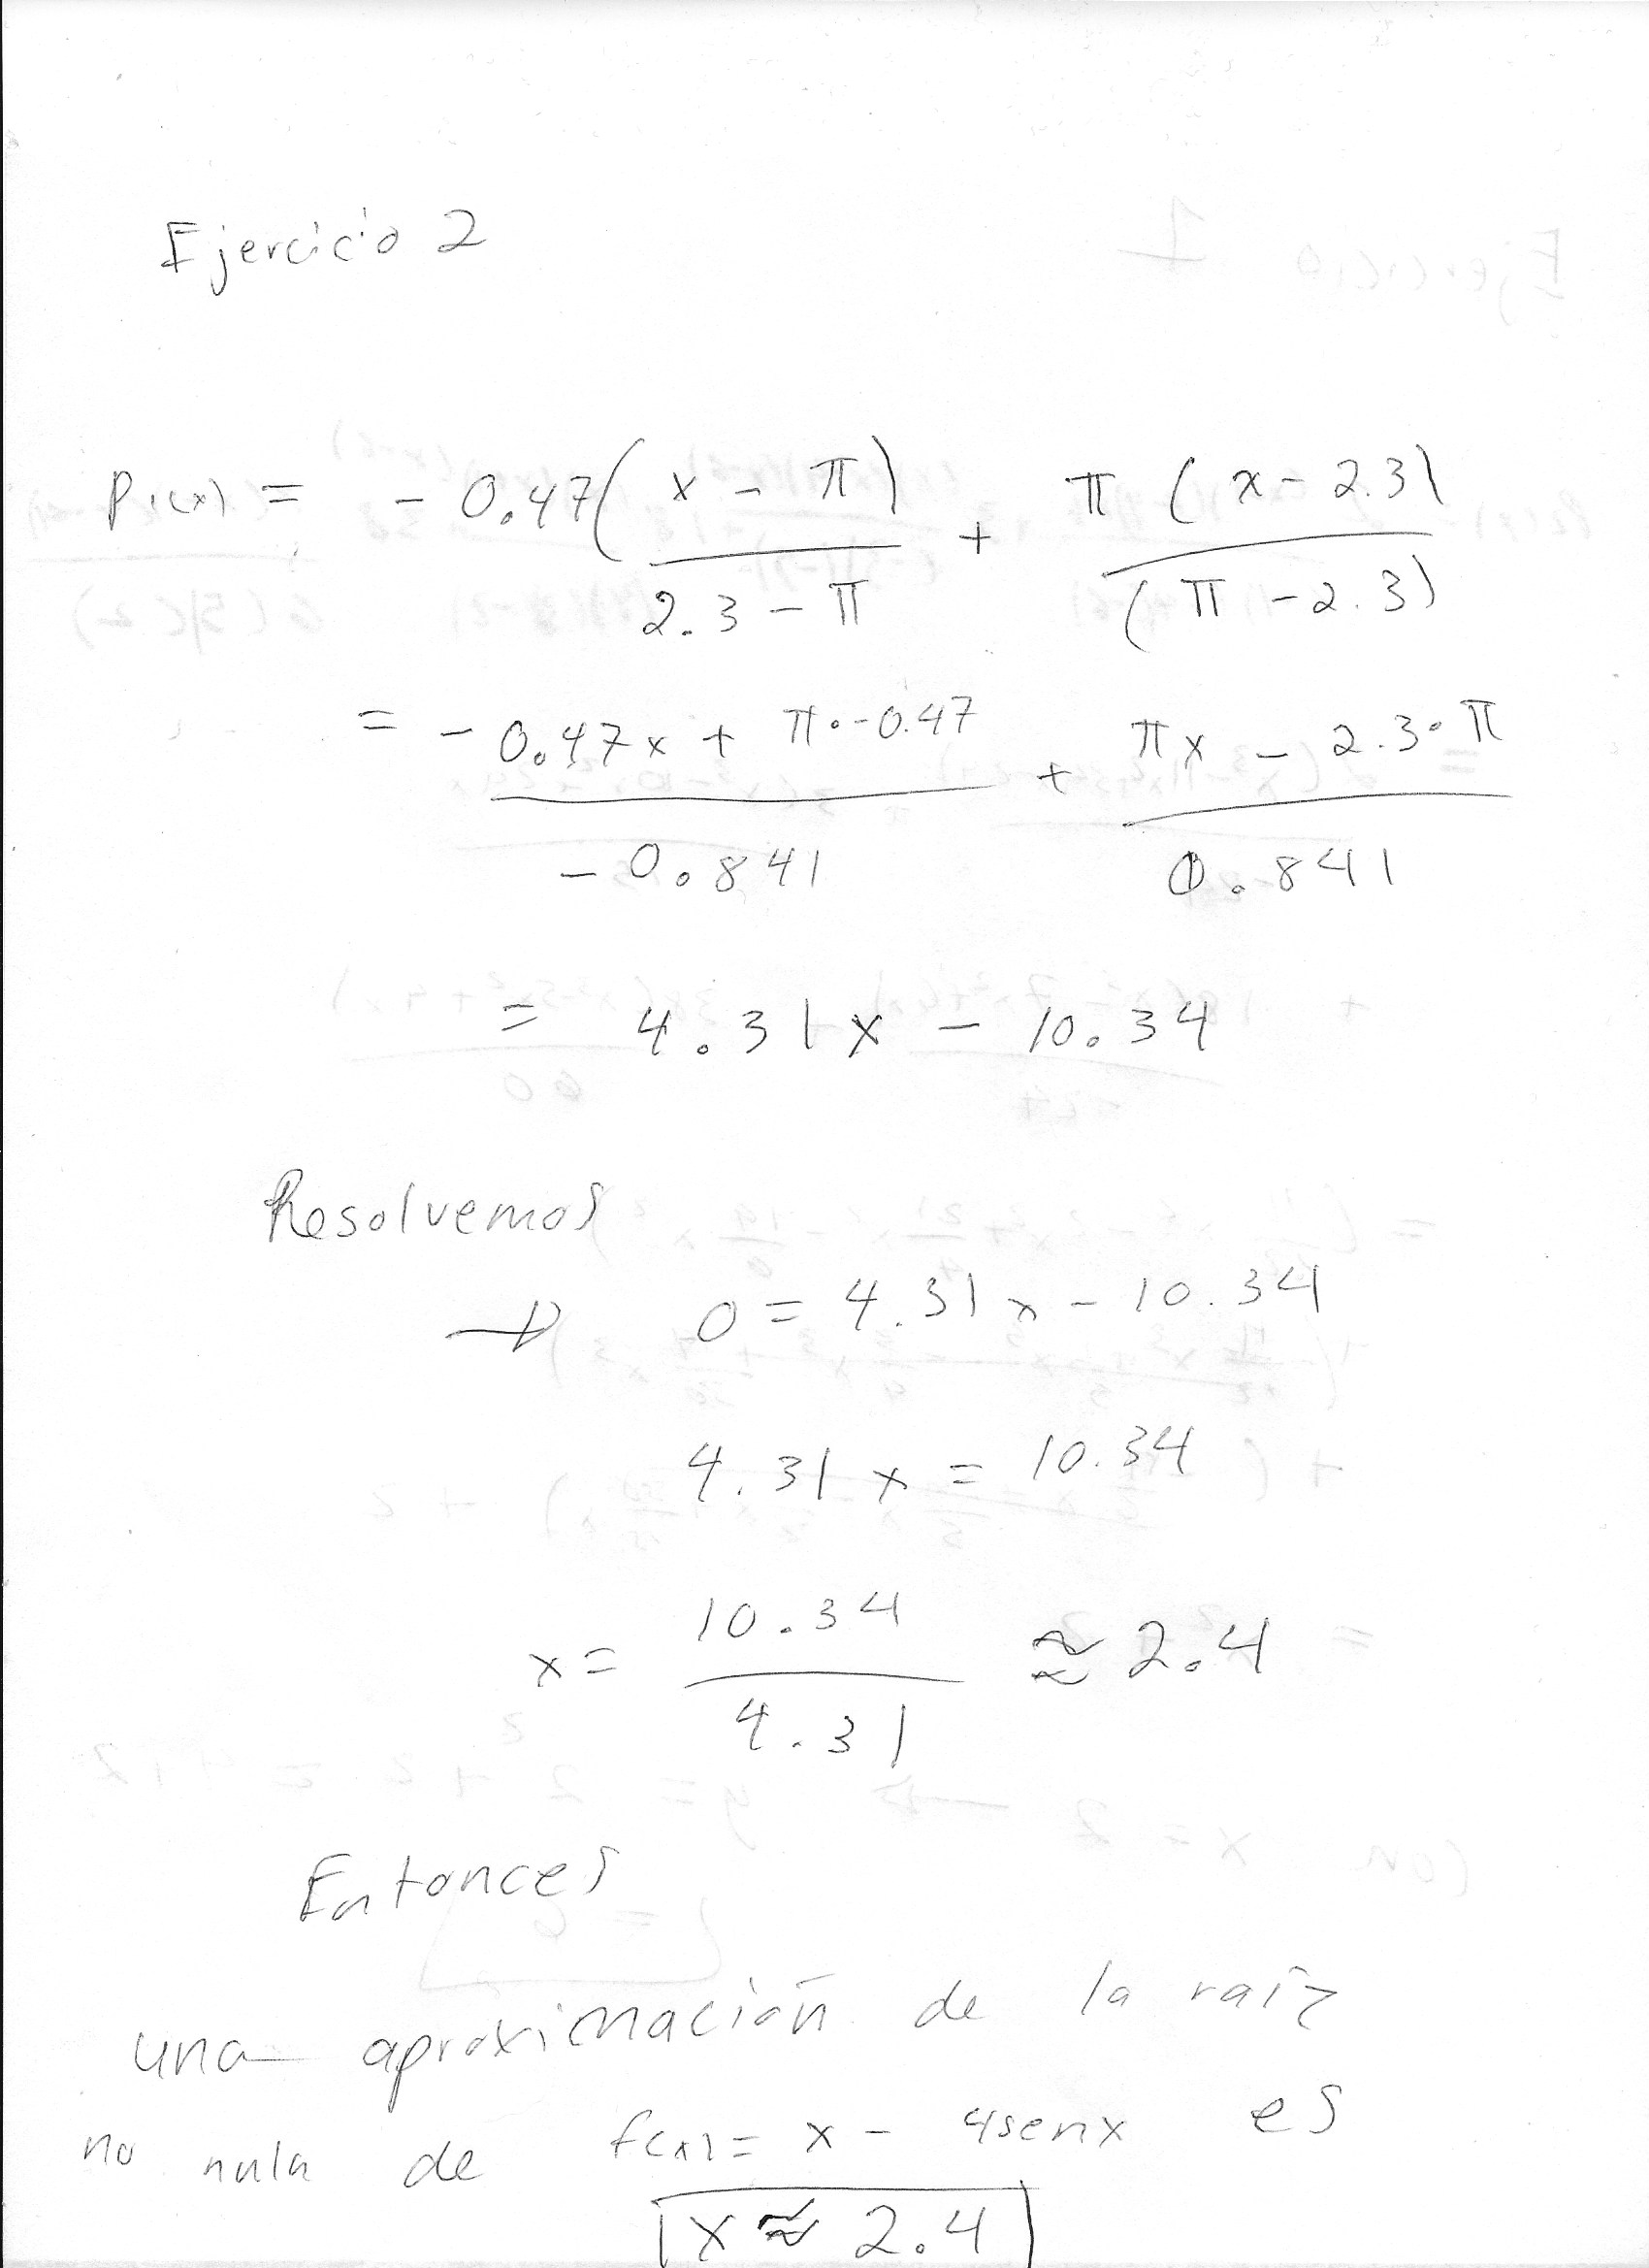 Ejercicio 2
P₁(x) = -0.47(x - π)/(2.3 - π) + π(x - 2.3)/(π - 2.3)
= (-0.47x + π·-0.47)/(-0.841) + (πx - 2.3·π)/(0.841)
= 4.31x - 10.34
Resolvemos
→ 0 = 4.31x - 10.34
4.31x = 10.34
x = 10.34/4.31 ≈ 2.4
Entonces
una aproximación de la raíz
no nula de f(x) = x - 4senx es
x ≈ 2.4